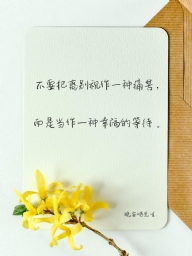 不要把离别视作一种痛苦，
而是当作一种幸福的等待。
晚安喵先生